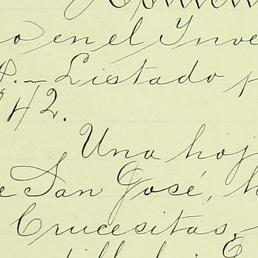 o en el Inve
8.— Listado p
42.
Una hoj
e San José, h
Crucesitas,